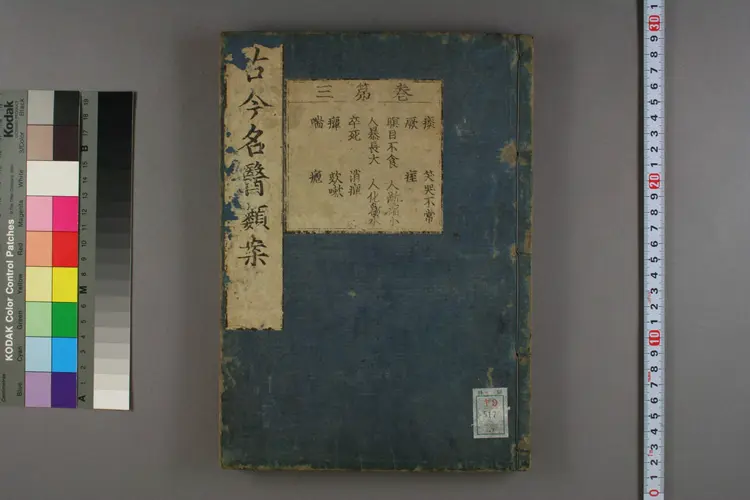 古今名醫類案
三 第 巻
痰 笑哭不常
厥 痙
瞑目不食
人暴長大 人化為水
卒死 消癉
癉 欬嗽
喘 瘧
Kodak
KODAK Color Control Patches
Blue Cyan Green Yellow Red Magenta White 3/Color Black
A 1 2 3 4 5 6 M 8 9 10 11 12 13 14 15 B 17 18 19
0 1 2 3 4 5 6 7 8 9 10 1 2 3 4 5 6 7 8 9 20 1 2 3 4 5 6 7 8 9 30 1